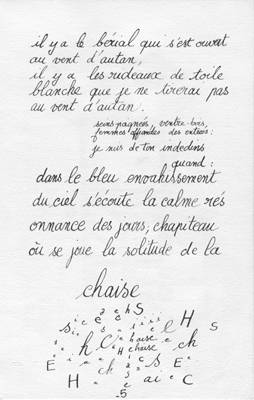 il y a le bérial qui s'est ouvert
au vent d'autan,
il y a les rideaux de toile
blanche que je ne tirerai pas
au vent d'autan.
seins pagnées, ventre-bras,
femmes offrandes des entrées:
je nus de ton indedins
quand:
dans le bleu envahissement
du ciel s'écoute la calme rés
onnance des jours, chapiteau
où se joue la solitude de la
chaise
5